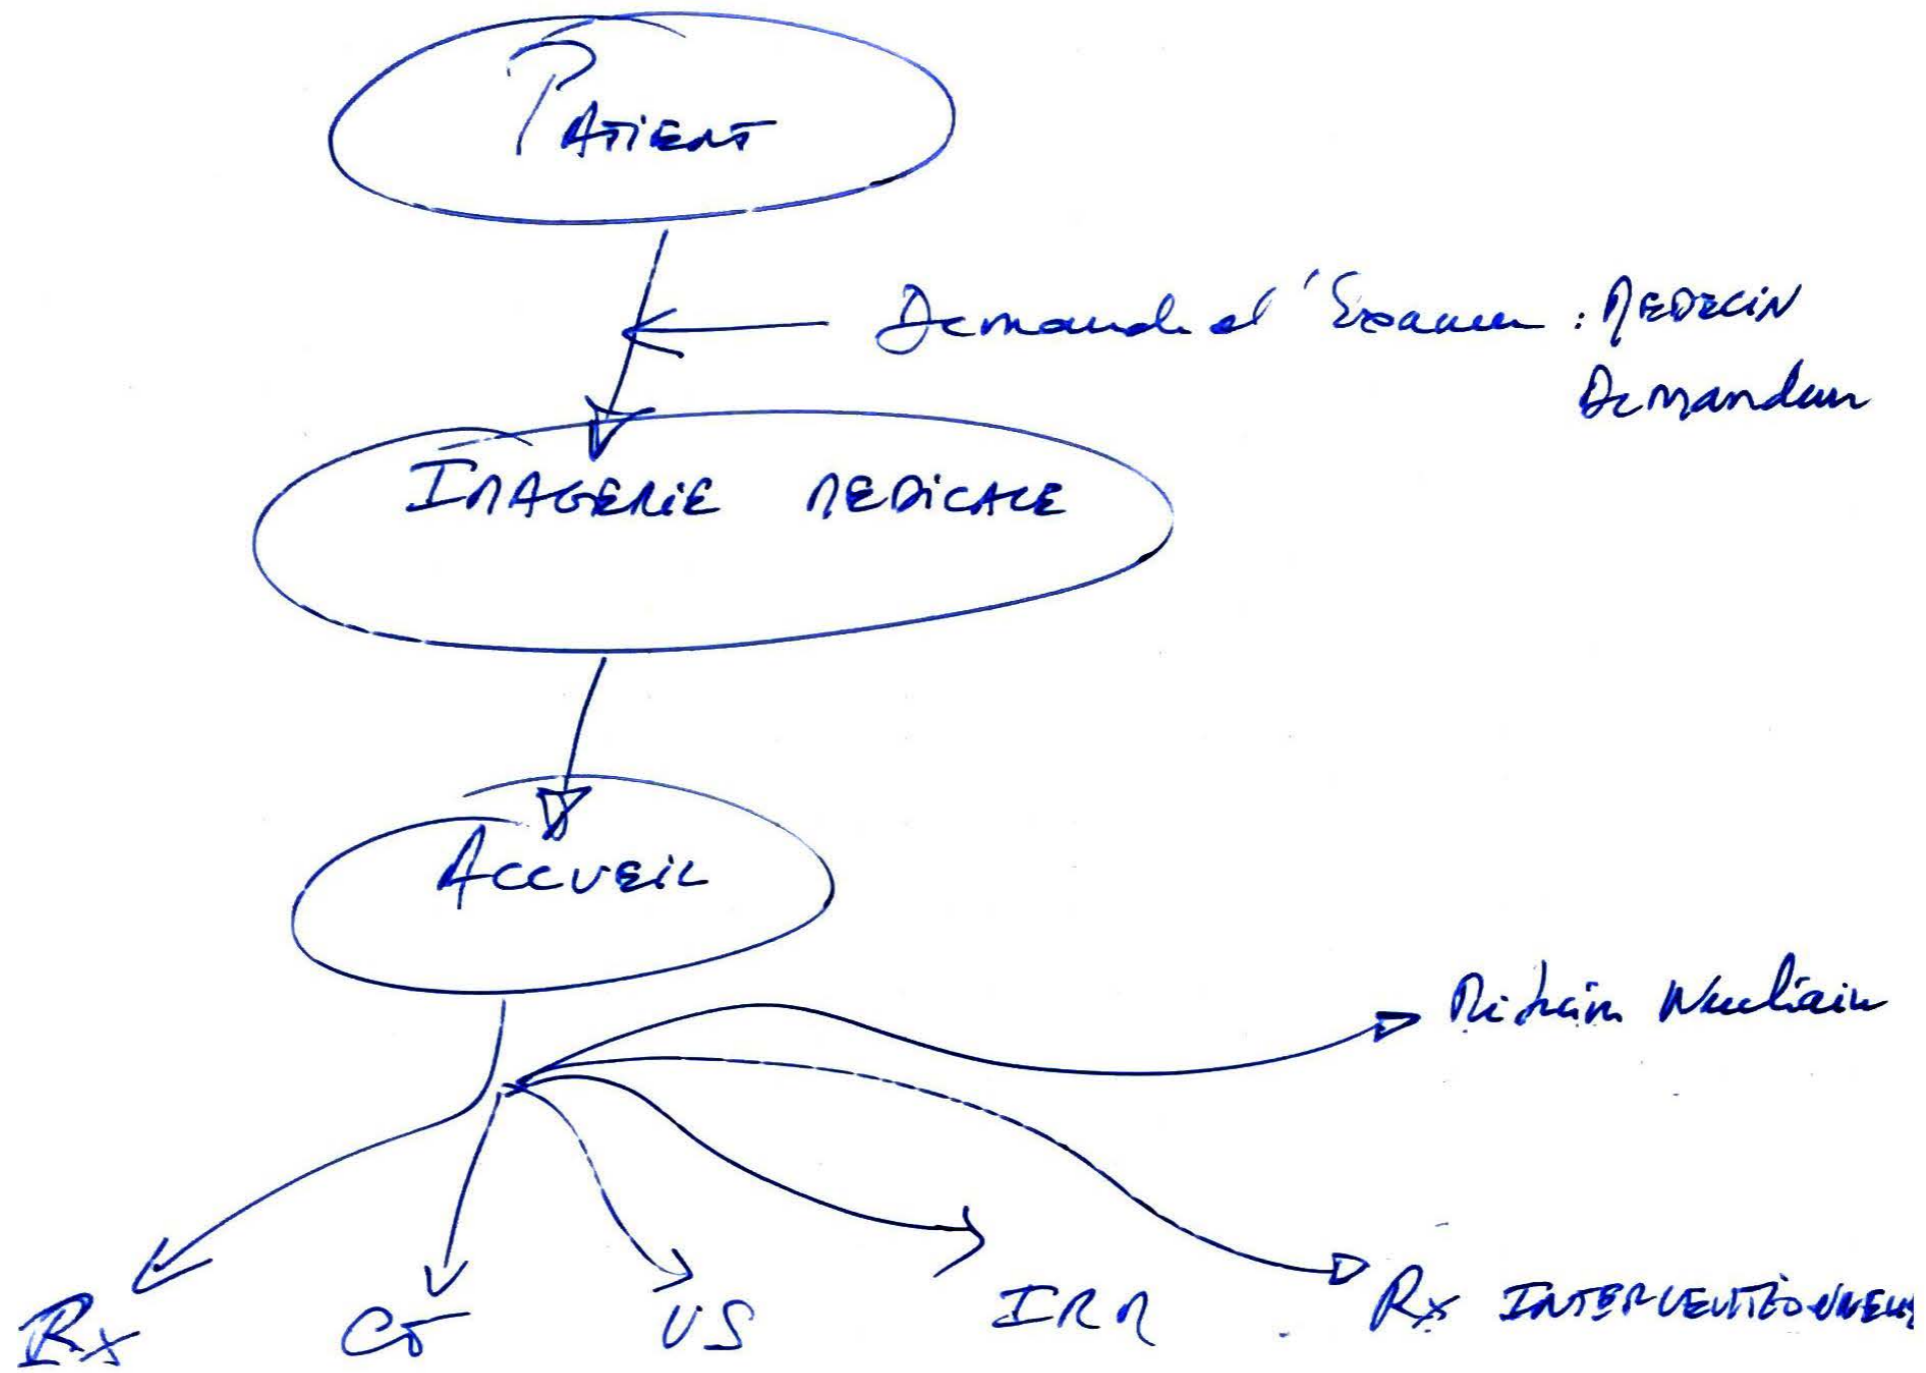 PATIENT
Demande d'Examen : MEDECIN
Demandeur
IMAGERIE MEDICALE
ACCUEIL
Médecine Nucléaire
Rx CT US IRM Rx INTERVENTIONNELLE